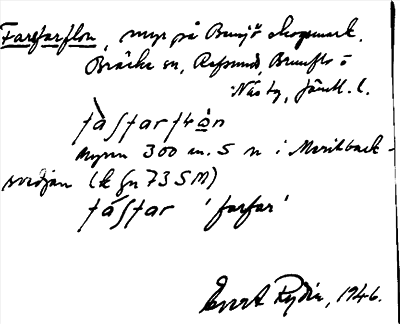 Farfarflon, myr på Bunsjö skogsmark.
Bräcke sn, Refsund, Brunflo o
Näs tg, Jämtl. l.
fàſfarfɬò̲n
Myren 300 m. S n i Moritback-
svedjan (k fn 73 S M)
fáſfar 'farfar'
Rydin, 1946.